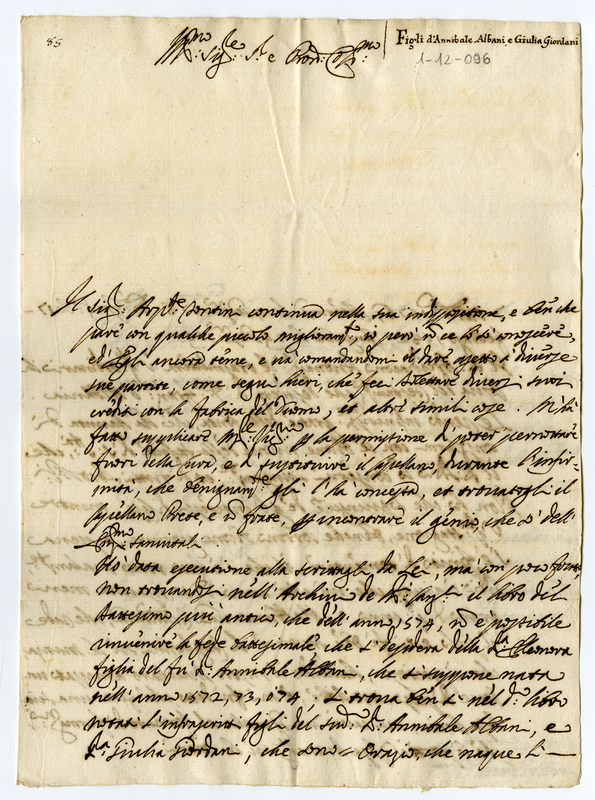 85
Figli d'Annibale Albani e Giulia Giordani
1-12-096
Ill.mo Sig.re S.r e Pron. Col.mo
Il Sig.r Arp.te continua nella sua indispositione, e ben che
pare con qualche piccolo miglioram.to, io però ce lo sò conoscere,
ed Egli ancora teme, e và comandandomi di dire a diverse
sue partite, come seguì hieri, che feci diversi suoi
crediti con la fabrica del Duomo, et altre simili cose. M'hà
fatto supplicare la permissione di poter pernottare
fuori della Cura, e di sustituire il Capellano, durante l'infir-
mità, che benignam.te gli l'hà concessa, et trovatogli il
Capellano Prete, e frate, incontrare il genio, che è dell'
Em.mo Sannitali.
Hò data esecutione alla scrittagli da Lei, mà con poco frutto,
non trovandosi nell' Archivio de il libro del
Battesimo più antico, che dell' anno 1574, è possibile
rinvenire la fede battesimale che si desidera della D.ra Eleonora
figlia del fù D. Annibale Albani, che si suppone nata
nell' anno 1572, 73, ò 74, si trova ben sì nel d.o libro
notati l'infrascritti figli del sud.o D. Annibale Albani, e
D.ra Giulia Giordani, che sono = Orazio, che naque li —